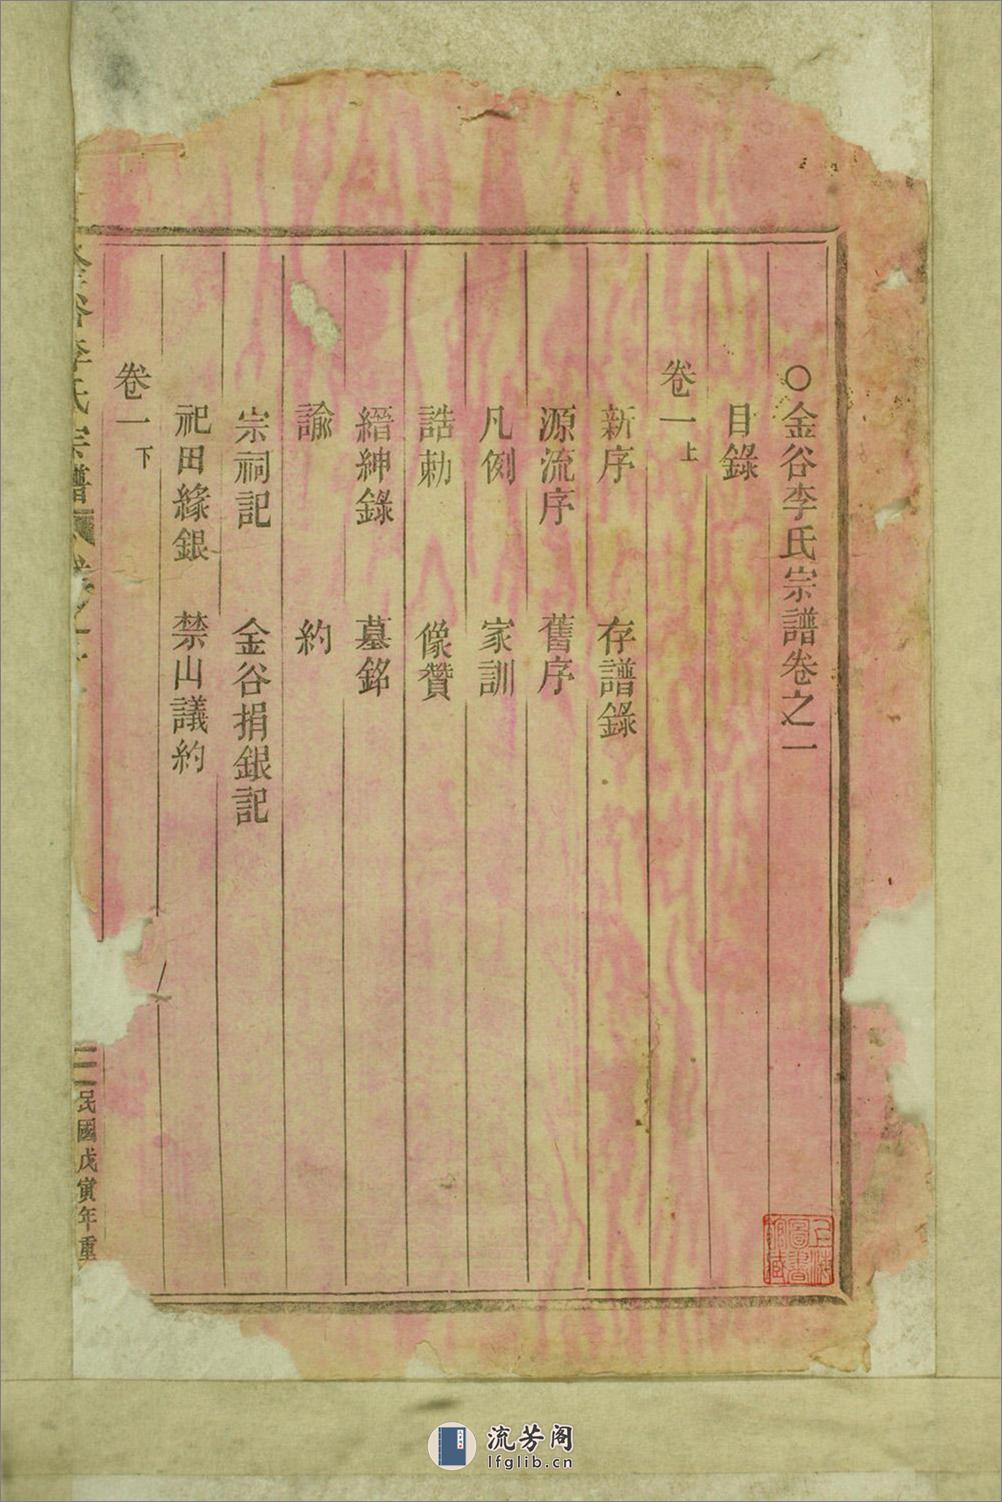 ○金谷李氏宗譜卷之一
目錄
卷一上
新序 存譜錄
源流序 舊序
凡例 家訓
誥勅 像贊
縉紳錄 墓銘
諭 約
宗祠記 金谷捐銀記
祀田緣銀 禁山議約
卷一下
金谷李氏宗譜 卷之一
民國戊寅年重
上海圖書館藏
流芳阁
lfglib.cn